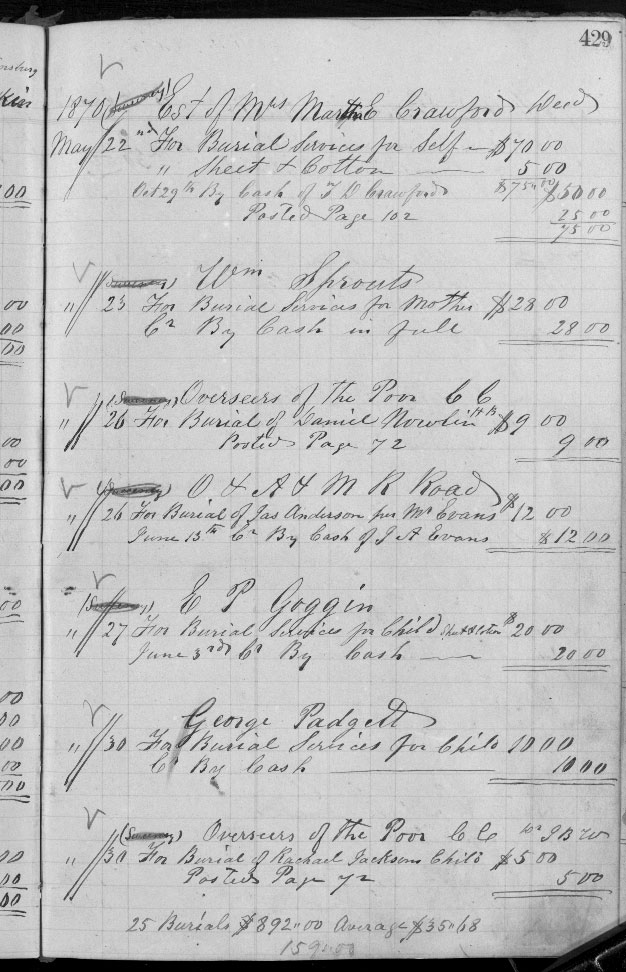 429
1870 Est of Mrs Martha E Crawford Decd
May 22nd For Burial Services for Self - $70 00
" Sheet & Cotton — 5 00
Oct 29th By Cash of T D Crawford $75"00 $50 00
Posted Page 102 25 00
75 00
Wm Sprouts
" 23 For Burial Services for Mother $28 00
Cr By Cash in full 28 00
Overseers of the Poor C C
" 26 For Burial of Daniel Nowlin $9 00
Posted Page 72 9 00
O & A & M R Road
" 26 For Burial of Jas Anderson per Mr Evans $12 00
June 13th Cr By Cash of J A Evans $12 00
E P Goggin
" 27 For Burial Services for Child $20 00
June 3rd Cr By Cash — 20 00
George Padgett
" 30 For Burial Services for Child 10 00
Cr By Cash — 10 00
Overseers of the Poor C C
" 30 For Burial of Rachael Jacksons Child $5 00
Posted Page 72 5 00
25 Burials $892"00 Average $35"68
159"00